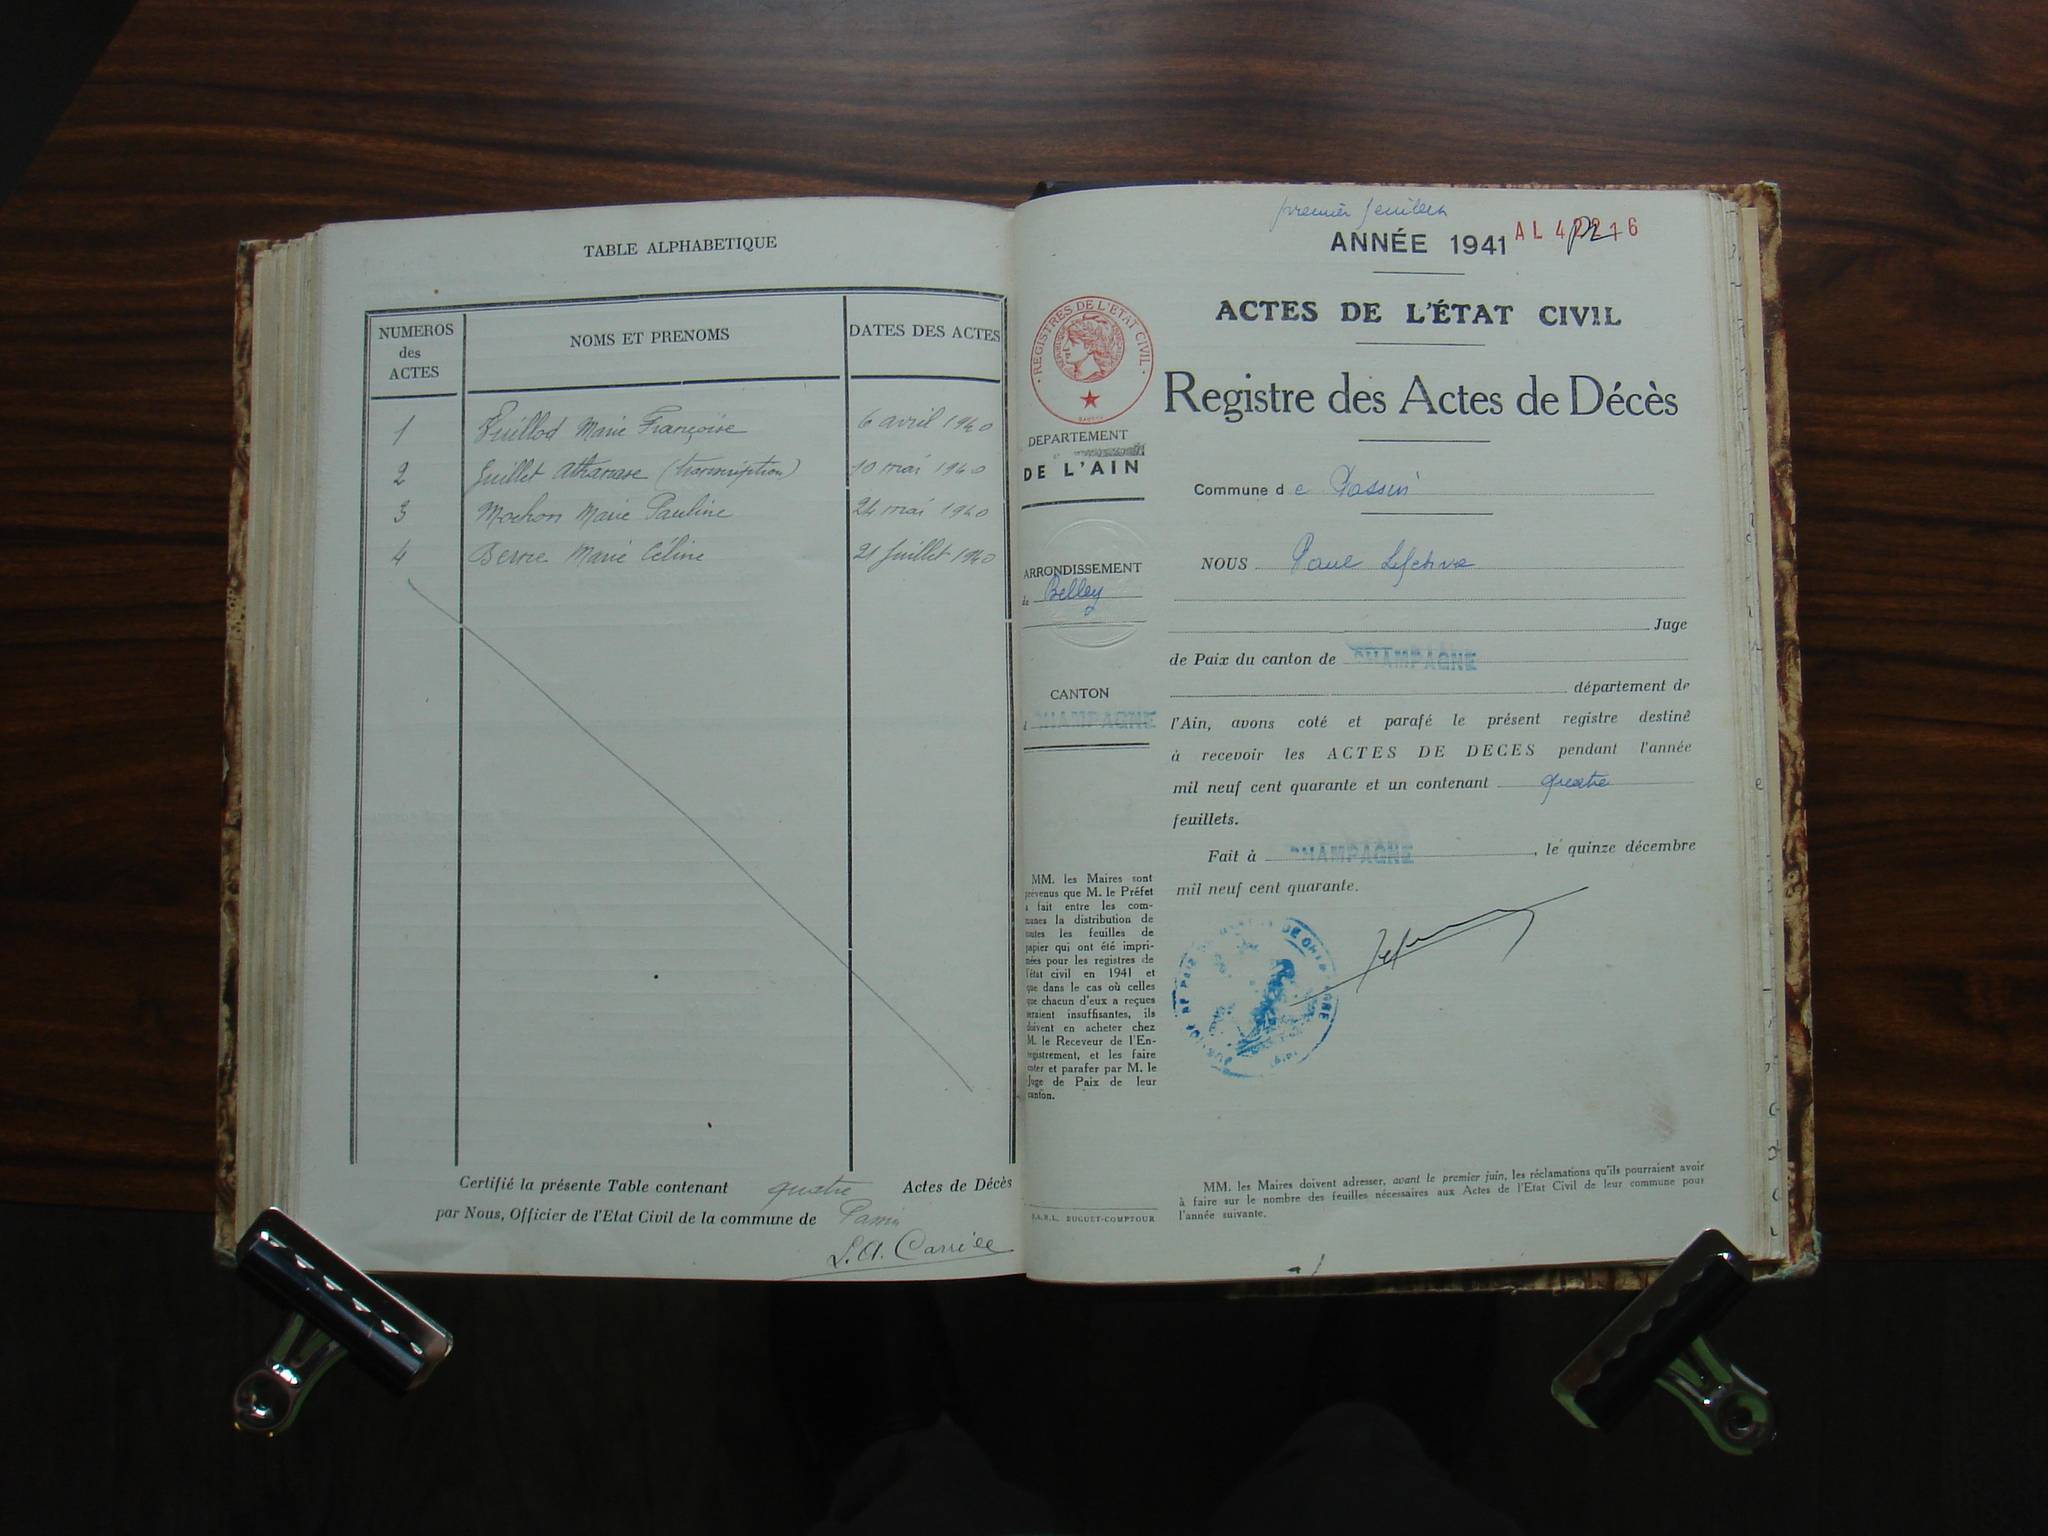 TABLE ALPHABETIQUE
NUMEROS
des
ACTES
NOMS ET PRENOMS
DATES DES ACTES
1 Marie Françoise 6 avril 1940
2 Juillet Athanase (transcription) 10 mai 1940
3 Mochon Marie Pauline 24 mai 1940
4 Marie Céline 21 Juillet 1940
Certifié la présente Table contenant quatre Actes de Décès
par Nous, Officier de l'Etat Civil de la commune de
premier feuillet
ANNÉE 1941
ACTES DE L'ÉTAT CIVIL
REGISTRES DE L'ETAT CIVIL
Registre des Actes de Décès
DEPARTEMENT
DE L'AIN
Commune de Passin
ARRONDISSEMENT
de Belley
NOUS Paul Lefebvre
Juge
de Paix du canton de CHAMPAGNE
département de
CANTON
CHAMPAGNE
l'Ain, avons coté et parafé le présent registre destiné
à recevoir les ACTES DE DECES pendant l'année
mil neuf cent quarante et un contenant quatre
feuillets.
Fait à CHAMPAGNE, le quinze décembre
mil neuf cent quarante.
MM. les Maires sont
prévenus que M. le Préfet
a fait entre les com-
munes la distribution de
toutes les feuilles de
papier qui ont été impri-
mées pour les registres de
l'état civil en 1941 et
que dans le cas où celles
que chacun d'eux a reçues
seraient insuffisantes, ils
doivent en acheter chez
M. le Receveur de l'En-
registrement, et les faire
coter et parafer par M. le
Juge de Paix de leur
canton.
MM. les Maires doivent adresser, avant le premier juin, les réclamations qu'ils pourraient avoir
à faire sur le nombre des feuilles nécessaires aux Actes de l'Etat Civil de leur commune pour
l'année suivante.
S.A.R.L. BUGUET-COMPTOUR